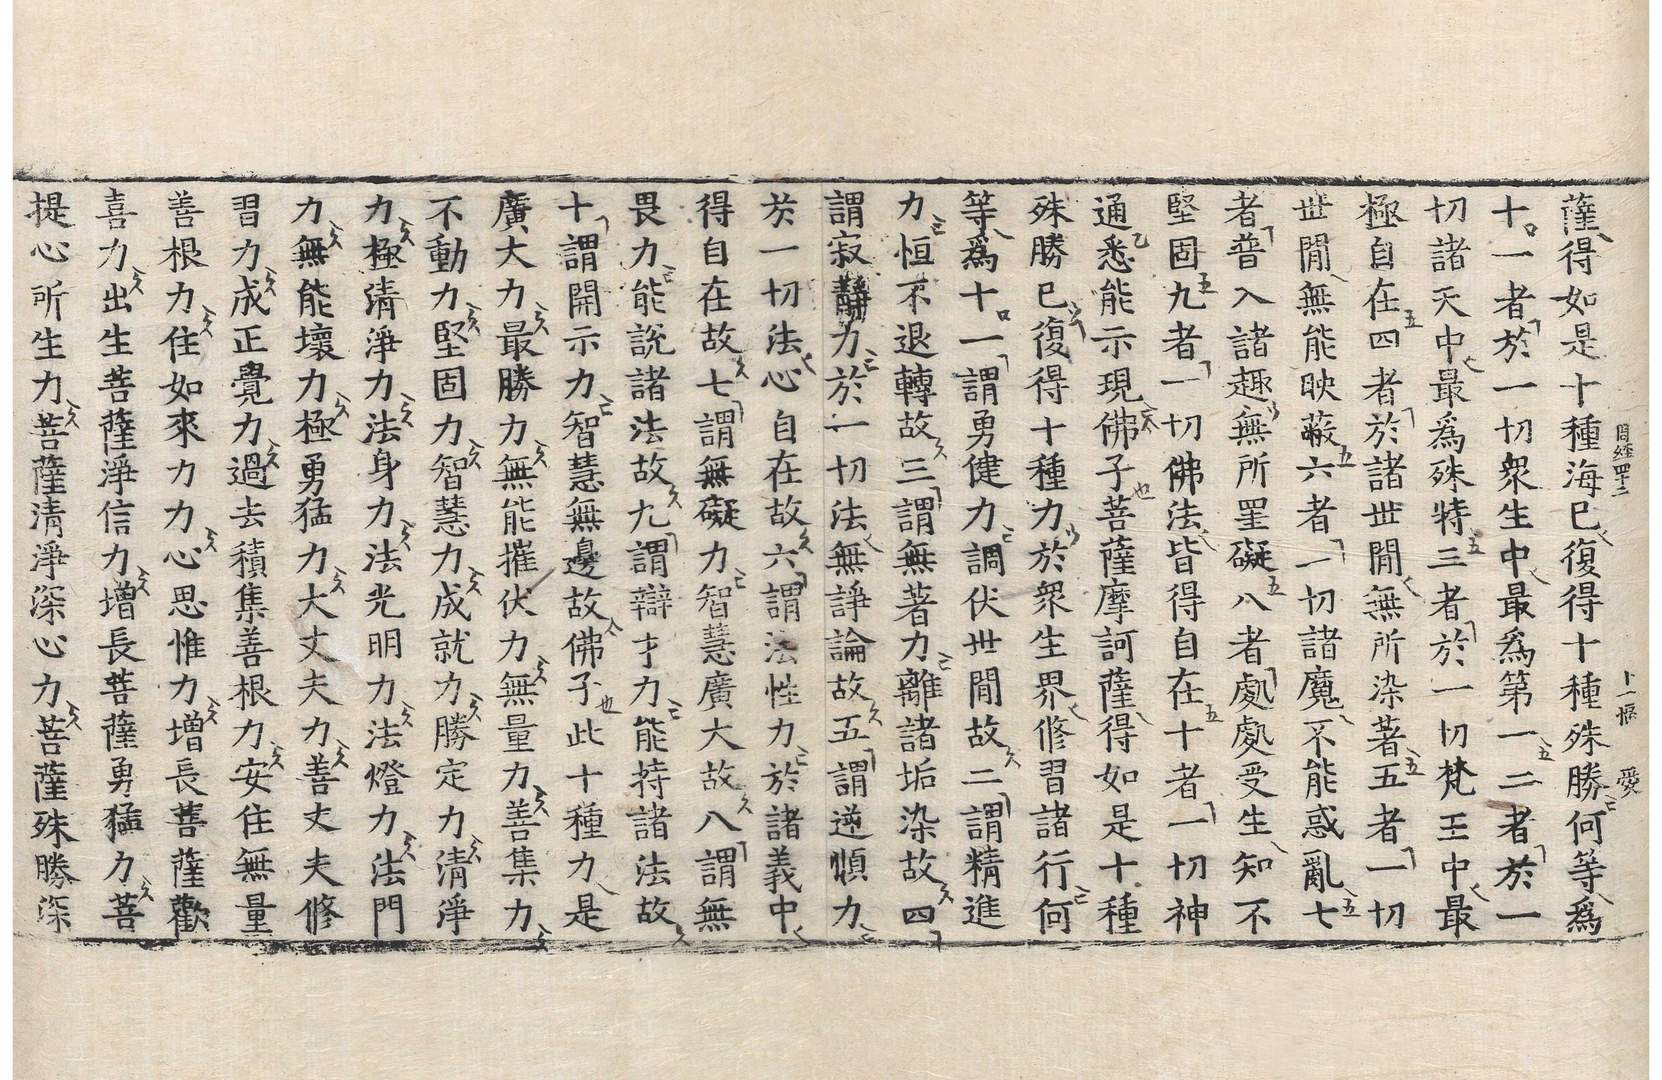 薩得如是十種海已復得十種殊勝何等爲
十一者於一切衆生中最爲第一二者於一
切諸天中最爲殊特三者於一切梵王中最
極自在四者於諸世閒無所染著五者一切
世閒無能映蔽六者一切諸魔不能惑亂七
者普入諸趣無所罣礙八者處處受生知不
堅固九者一切佛法皆得自在十者一切神
通悉能示現佛子菩薩摩訶薩得如是十種
殊勝已復得十種力於衆生界修習諸行何
等爲十一謂勇健力調伏世閒故二謂精進
力恒不退轉故三謂無著力離諸垢染故四
謂寂靜力於一切法無諍論故五謂逆順力
於一切法心自在故六謂法性力於諸義中
得自在故七謂無礙力智慧廣大故八謂無
畏力能說諸法故九謂辯才力能持諸法故
十謂開示力智慧無邊故佛子此十種力是
廣大力最勝力無能摧伏力無量力善集力
不動力堅固力智慧力成就力勝定力清淨
力極清淨力法身力法光明力法燈力法門
力無能壞力極勇猛力大丈夫力善丈夫修
習力成正覺力過去積集善根力安住無量
善根力住如來力力心思惟力增長菩薩歡
喜力出生菩薩淨信力增長菩薩勇猛力菩
提心所生力菩薩清淨深心力菩薩殊勝深